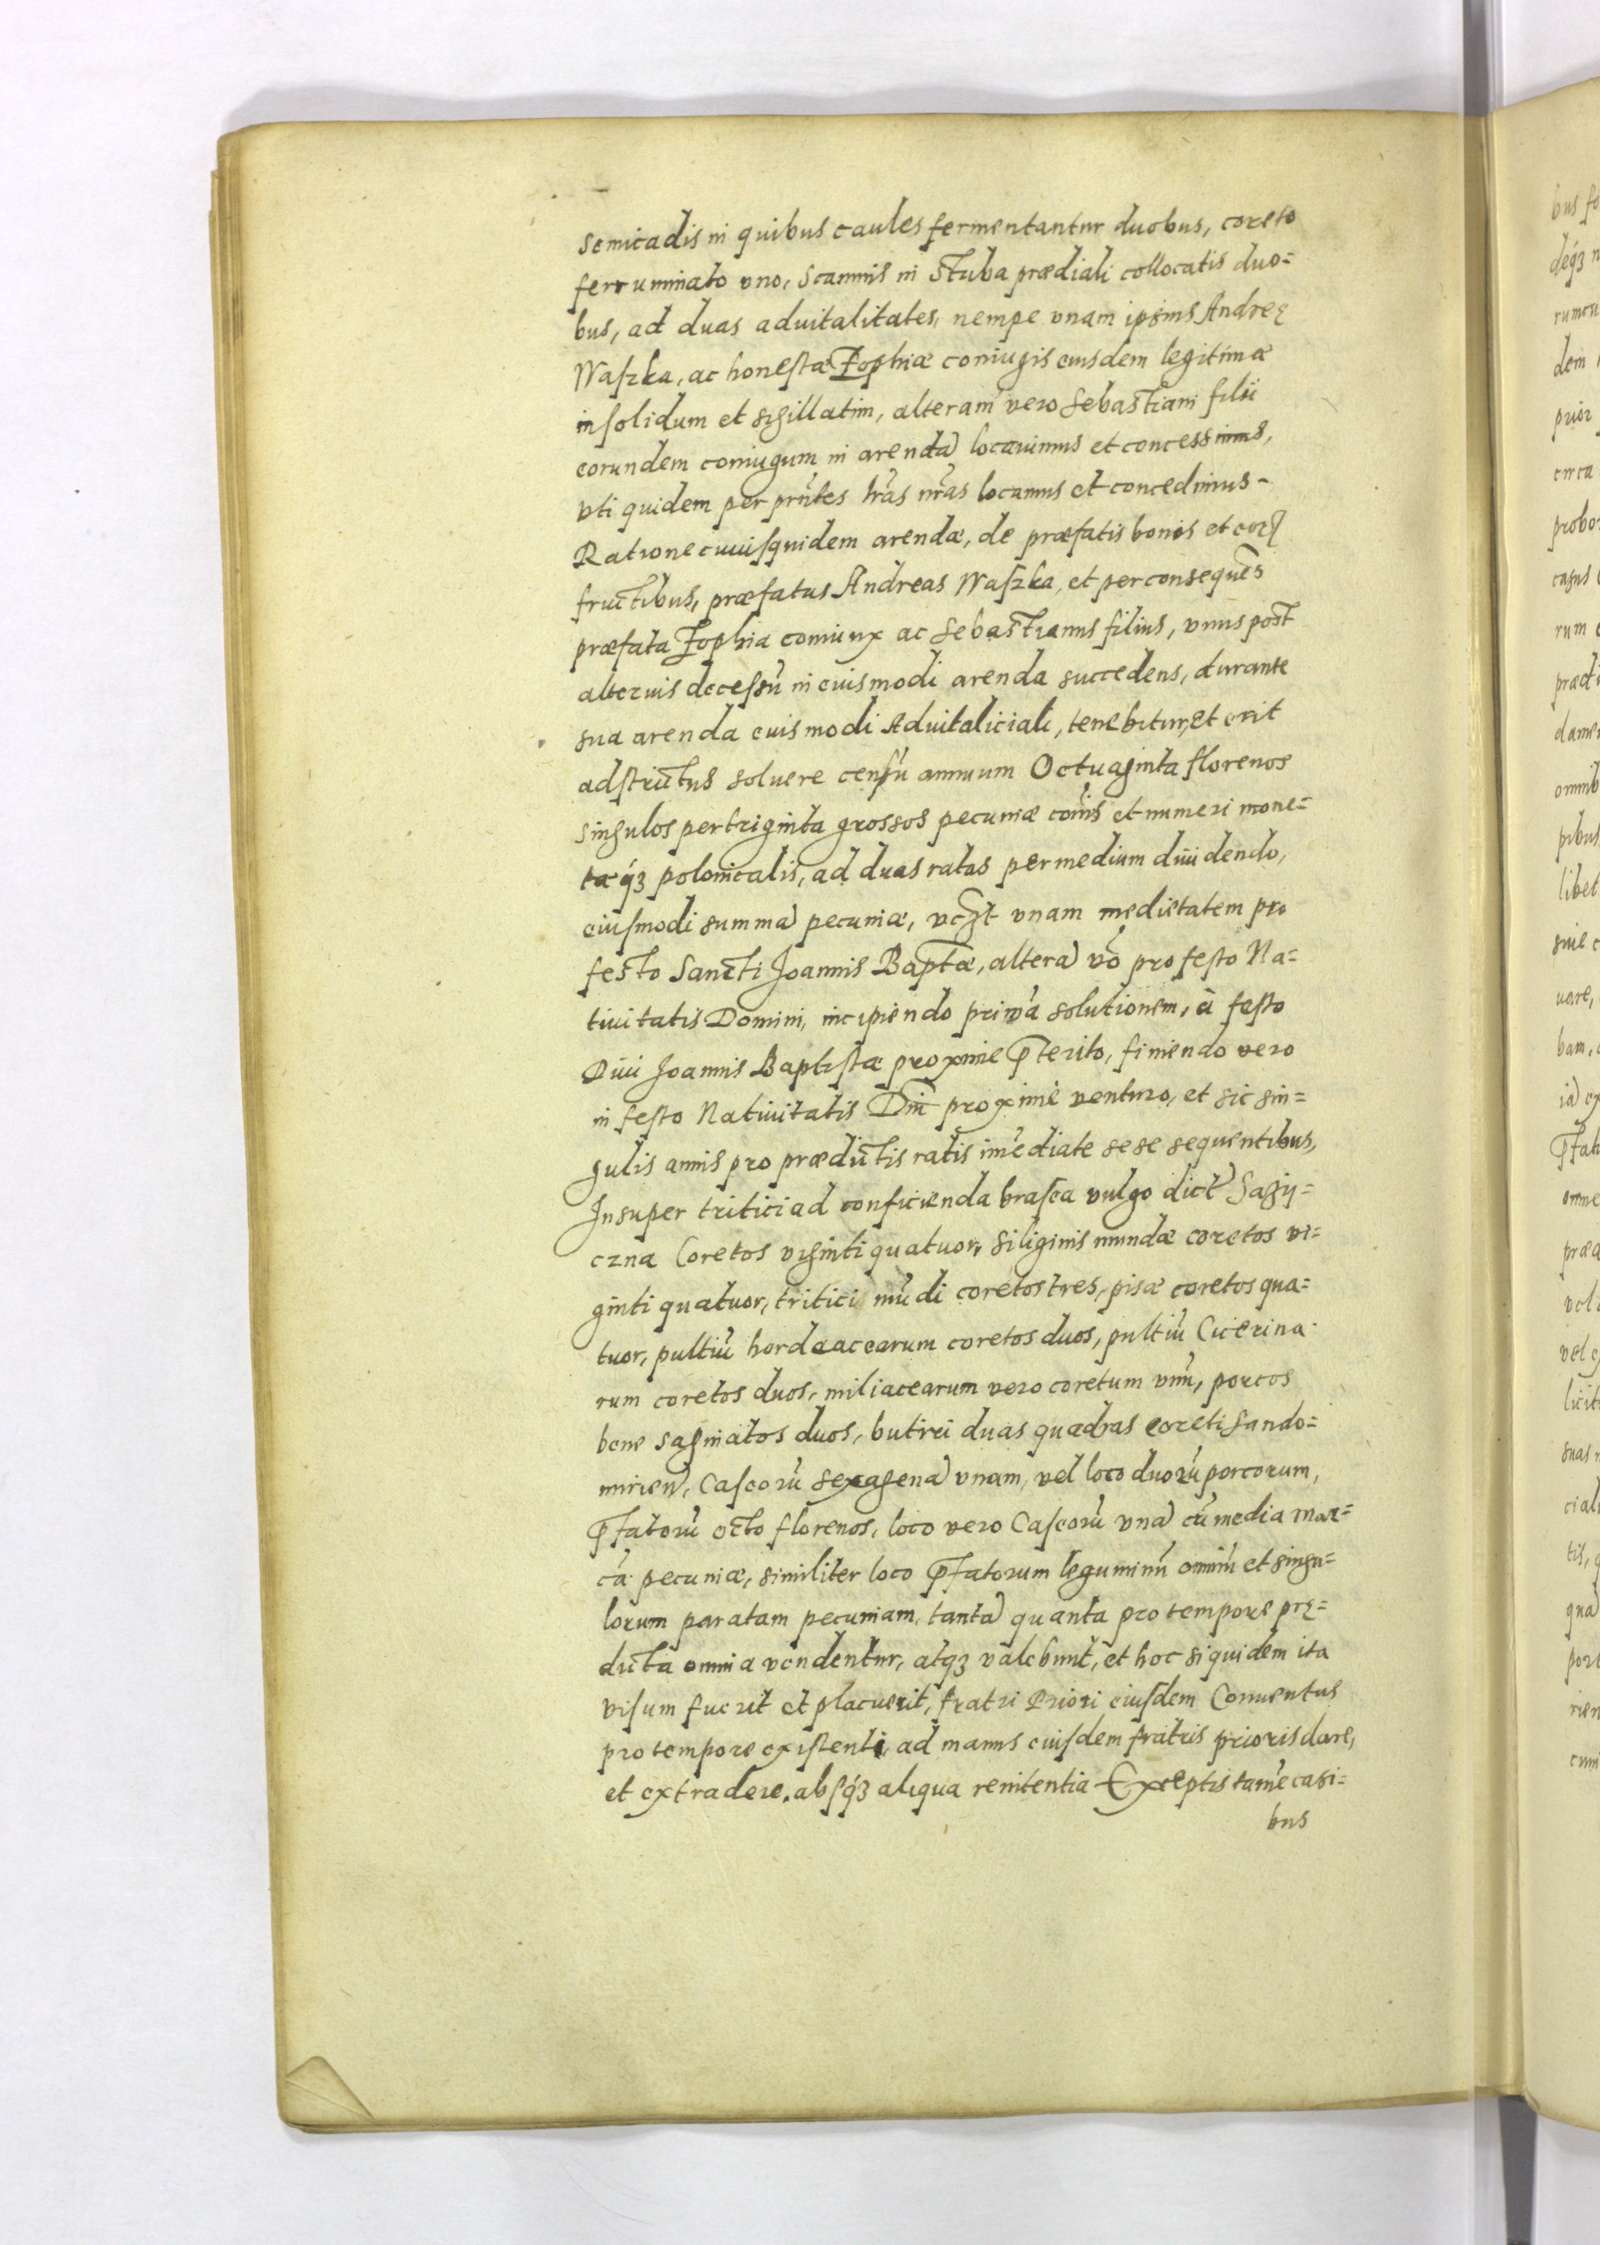 semicadis in quibus caules fermentantur duobus, coreto
ferruminato vno, scamnis in Stuba prædiali collocatis duo=
bus, ad duas aduitalitates, nempe vnam ipsius Andreę
Waszka, ac honestæ Zophiæ coniugis eiusdem legitimæ
in solidum et sigillatim, alteram vero Sebastiani filii
eorundem coniugum in arendã locauimus et concessimus,
vti quidem per pñtes lr̃as nr̃as locamus et concedimus -
Ratione cuiusquidem arendæ, de præfatis bonis et eorꝝ
fructibus, præfatus Andreas Waszka, et per conseque͂s
præfata Zophia coniunx ac Sebastianus filius, vnus post
alterius decessũ in eiusmodi arenda succedens, durante
sua arenda euismodi Aduitaliciali, tenebitur, et erit
adstrictus soluere censũ annuum Octuaginta florenos
singulos per triginta grossos pecuniæ com̃is et numeri mone=
tæq́ꝫ polonicalis, ad duas ratas per medium diuidendo,
eiusmodi summã pecuniæ, vcꝫt vnam medietatem pro
festo Sancti Joannis Bapt̃æ, alterã võ pro festo Na=
tiuitatis Domini, incipiendo primã solutionem, à festo
Diui Joannis Baptistæ proxime p̃terito, finiendo vero
in festo Natiuitatis Dñi proximè venturo, et sic sin=
gulis annis pro prædictis ratis im̃ediate sese sequentibus,
Insuper tritici ad conficienda brasea vulgo dict̃ Jagy=
czna Coretos viginti quatuor, siliginis mundæ coretos vi=
ginti quatuor, tritici mũdi coretos tres, pisæ coretos qua=
tuor, pultiũ hordeacearum coretos duos, pultiũ Cicerina
rum coretos duos, miliacearum vero coretum vnũ, porcos
bene saginatos duos, butiri duas quadras coreti Sando=
mirieñ, Caseorũ sexagenã vnam, vel loco duorũ porcorum,
p̃fatorũ octo florenos, loco vero Caseorũ vnã cũ media mar=
cã pecuniæ, similiter loco p̃fatorum leguminũ omniũ et singu=
lorum paratam pecuniam, tantã quanta pro tempore prę=
dicta omnia vendentur, atqꝫ valebunt, et hoc siquidem ita
visum fuerit et placuerit, fratri Priori eiusdem Conuentus
pro tempore existenti, ad manus eiusdem fratris prioris dare,
et extradere, absq́ꝫ aliqua renitentia Exceptis tam̃e casi=
bus